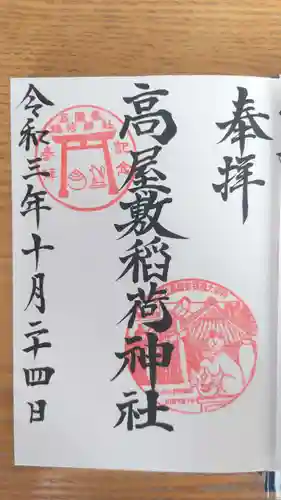 奉拝
高屋敷稲荷神社
令和三年十月二十四日
参拝
記念